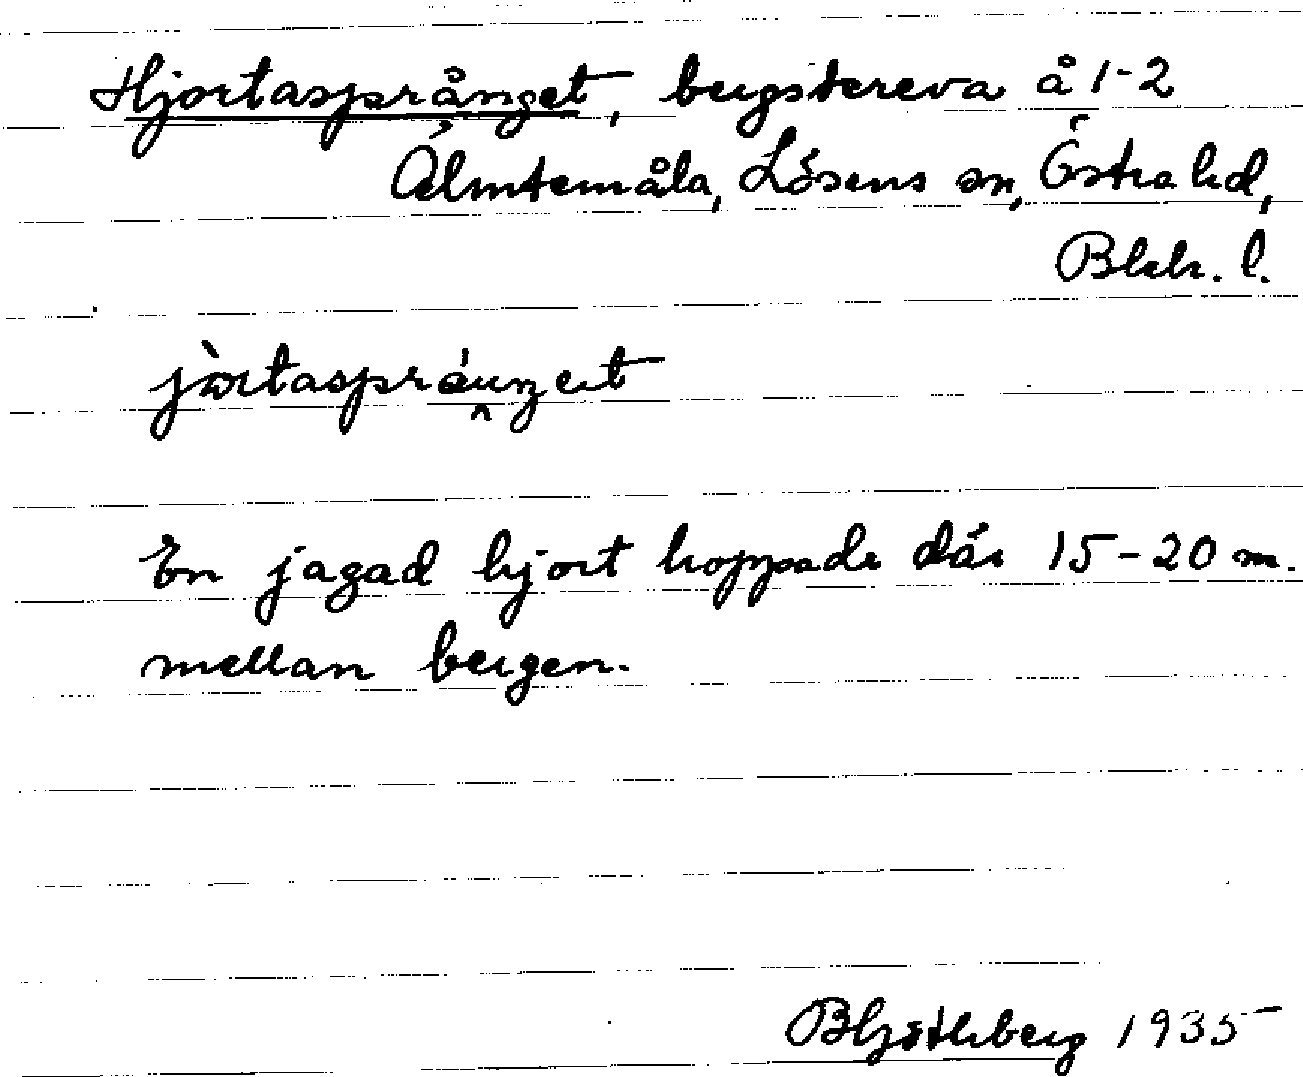 Hjortasprånget, bergsterева å 1-2
Älmtemåla, Lösens sn, Östra hd,
Blek. l.
jòrtaspráunget
En jagad hjort hoppade där 15-20 m.
mellan bergen.
1935